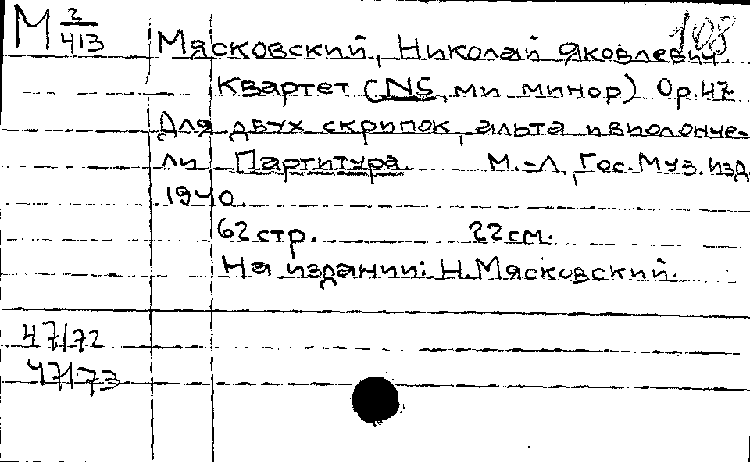 М 2/413
108
Мясковский, Николай Яковлевич
Квартет (№5, ми минор) Ор.47
Для двух скрипок, альта и виолонче-
ли Партитура. М.-Л., Гос. Муз. изд.
1940.
62 стр. 22 см.
На издании: Н. Мясковский.
47/72
47/73